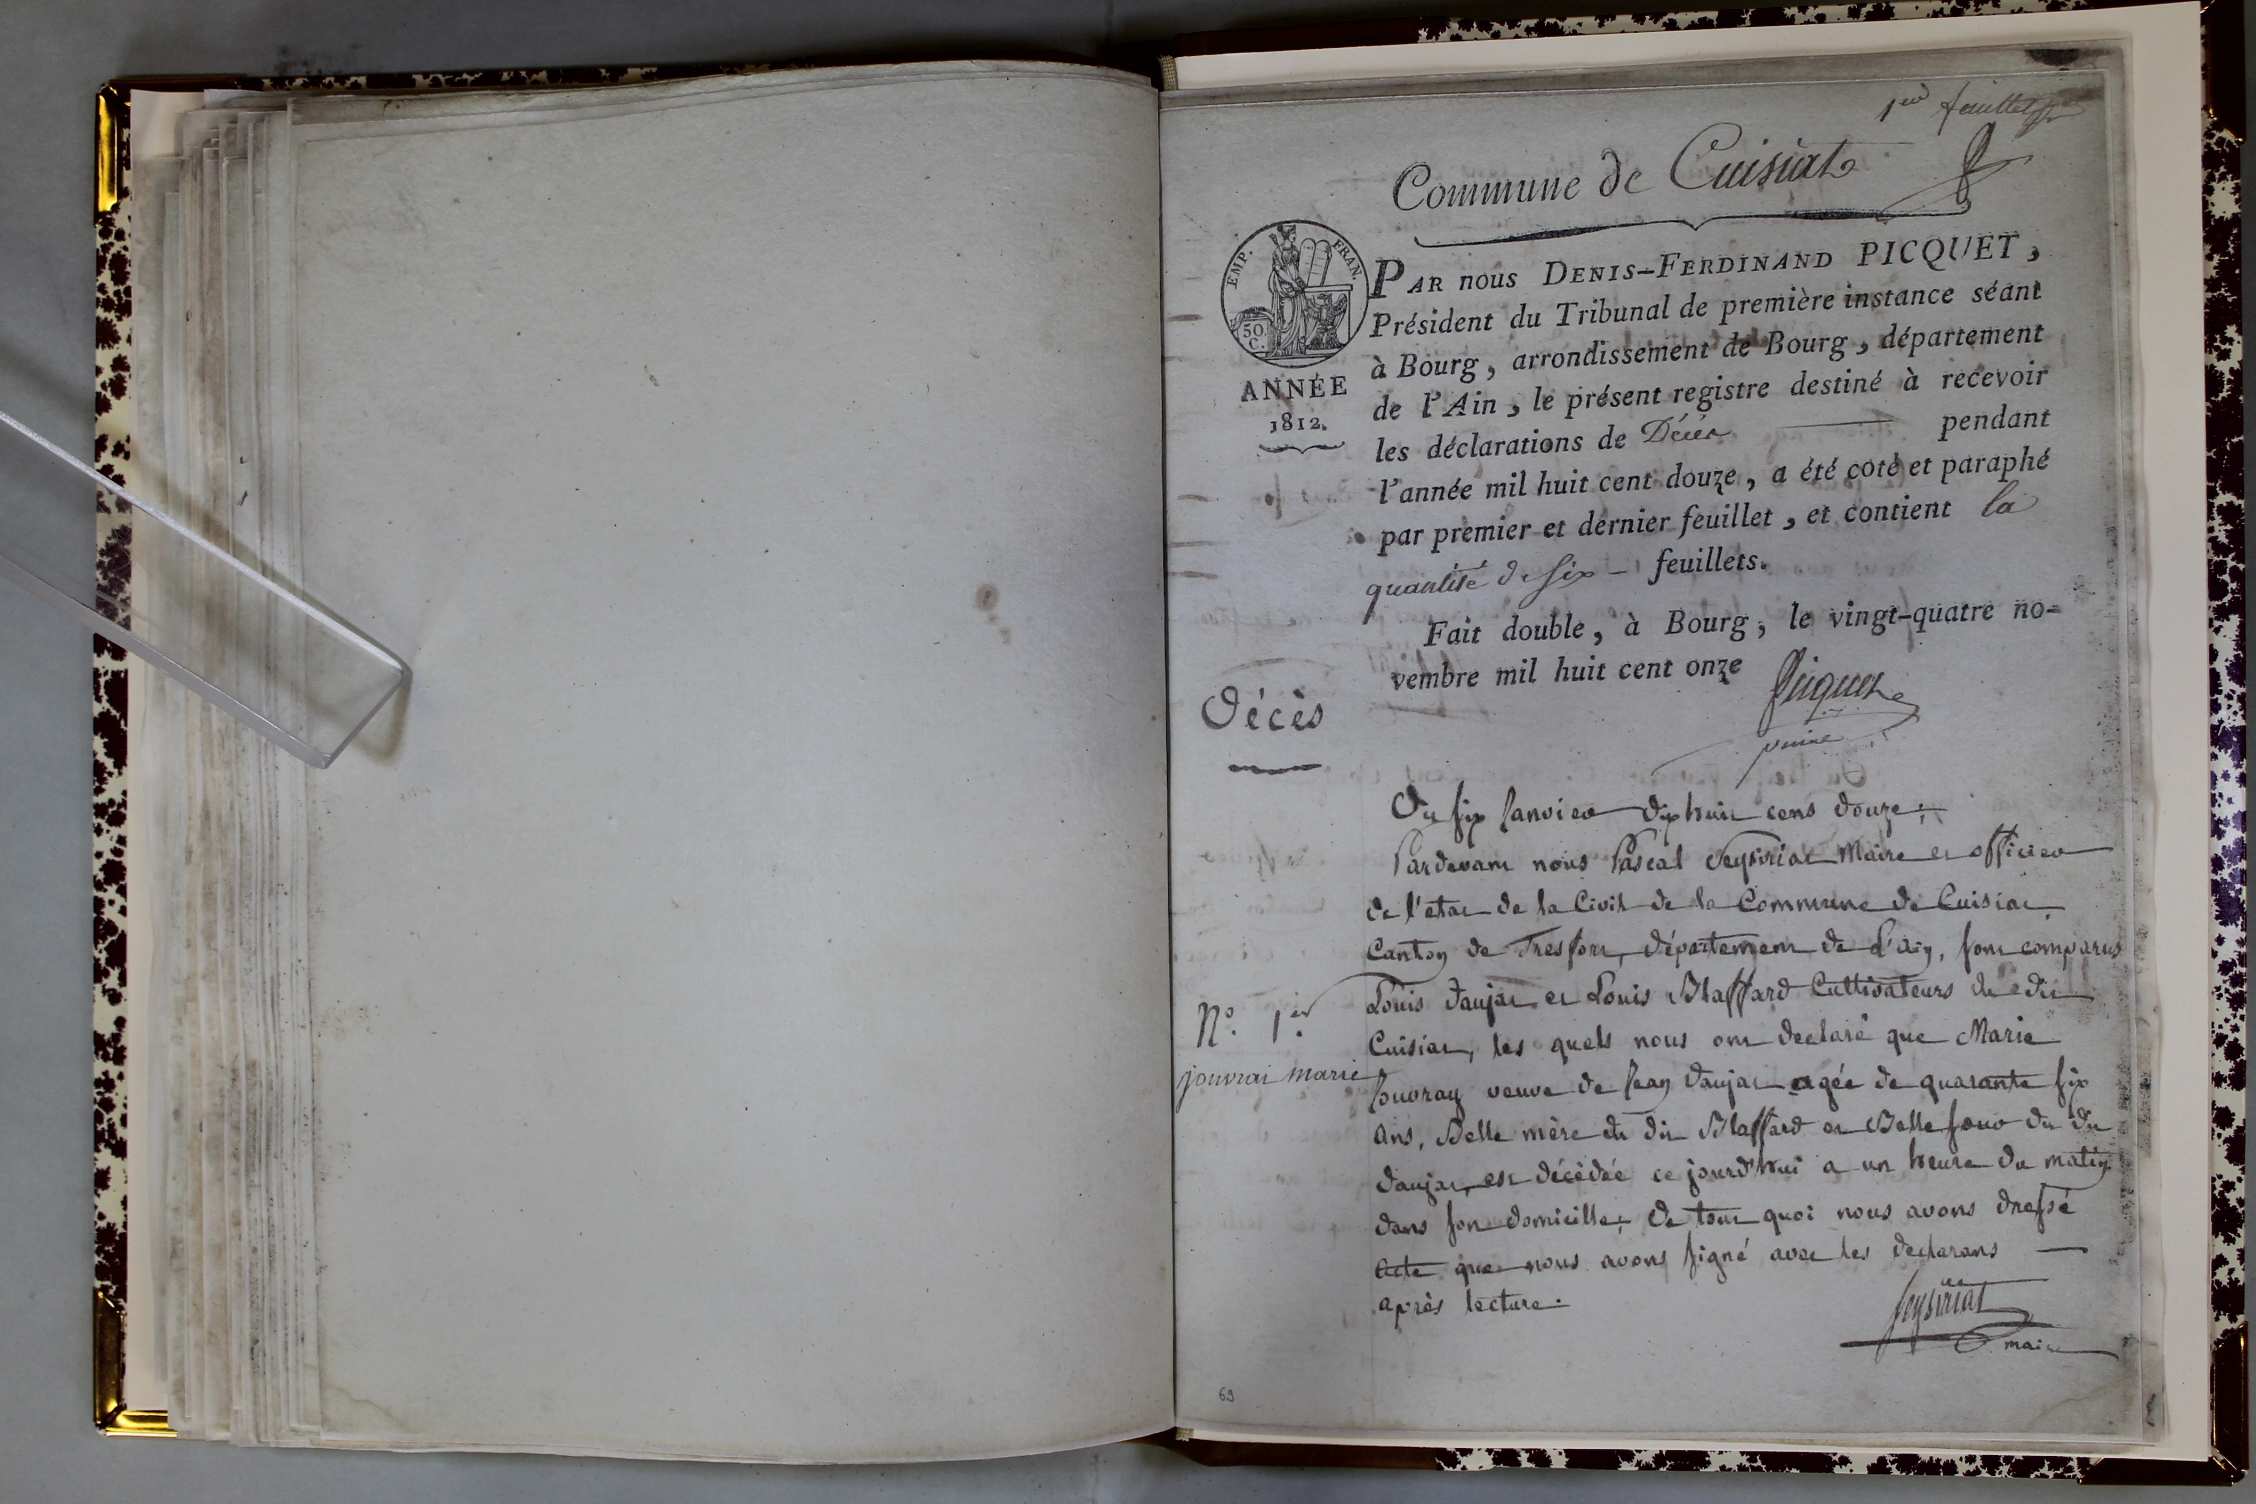 1er feuillet
Commune de Cuisiat
EMP. FRAN.
50. C.
ANNÉE
1812.
PAR nous DENIS-FERDINAND PICQUET,
Président du Tribunal de première instance séant
à Bourg, arrondissement de Bourg, département
de l'Ain, le présent registre destiné à recevoir
les déclarations de Décès pendant
l'année mil huit cent douze, a été coté et paraphé
par premier et dernier feuillet, et contient la
quantité de six feuillets.
Fait double, à Bourg, le vingt-quatre no-
vembre mil huit cent onze
Picquet
Décès
Du six Janvier dix huit cens douze;
Pardevant nous Pascal Seysiriat Maire et officier
de l'etat de la Civil de la Commune de Cuisiat
Canton de Tresfort, département de L'ain, sont comparus
Louis Daujat et Louis Blaffard Cultivateurs du dit
Cuisiat, les quels nous ont declaré que Marie
Jouvray veuve de Jean Daujat agée de quarante six
ans, Belle mère du dit Blaffard et Belle soeur du dit
Daujat, est décédée ce jourd'hui a un heure du matin
dans son domicille; de tout quoi nous avons dressé
Acte que nous avons signé avec les declarans
après lecture.
No. 1er
jouvrai marie
Seysiriat
maire
69